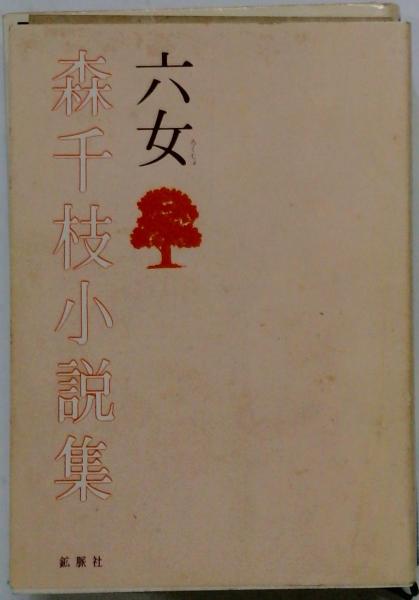 六女
森千枝小説集
鉱脈社